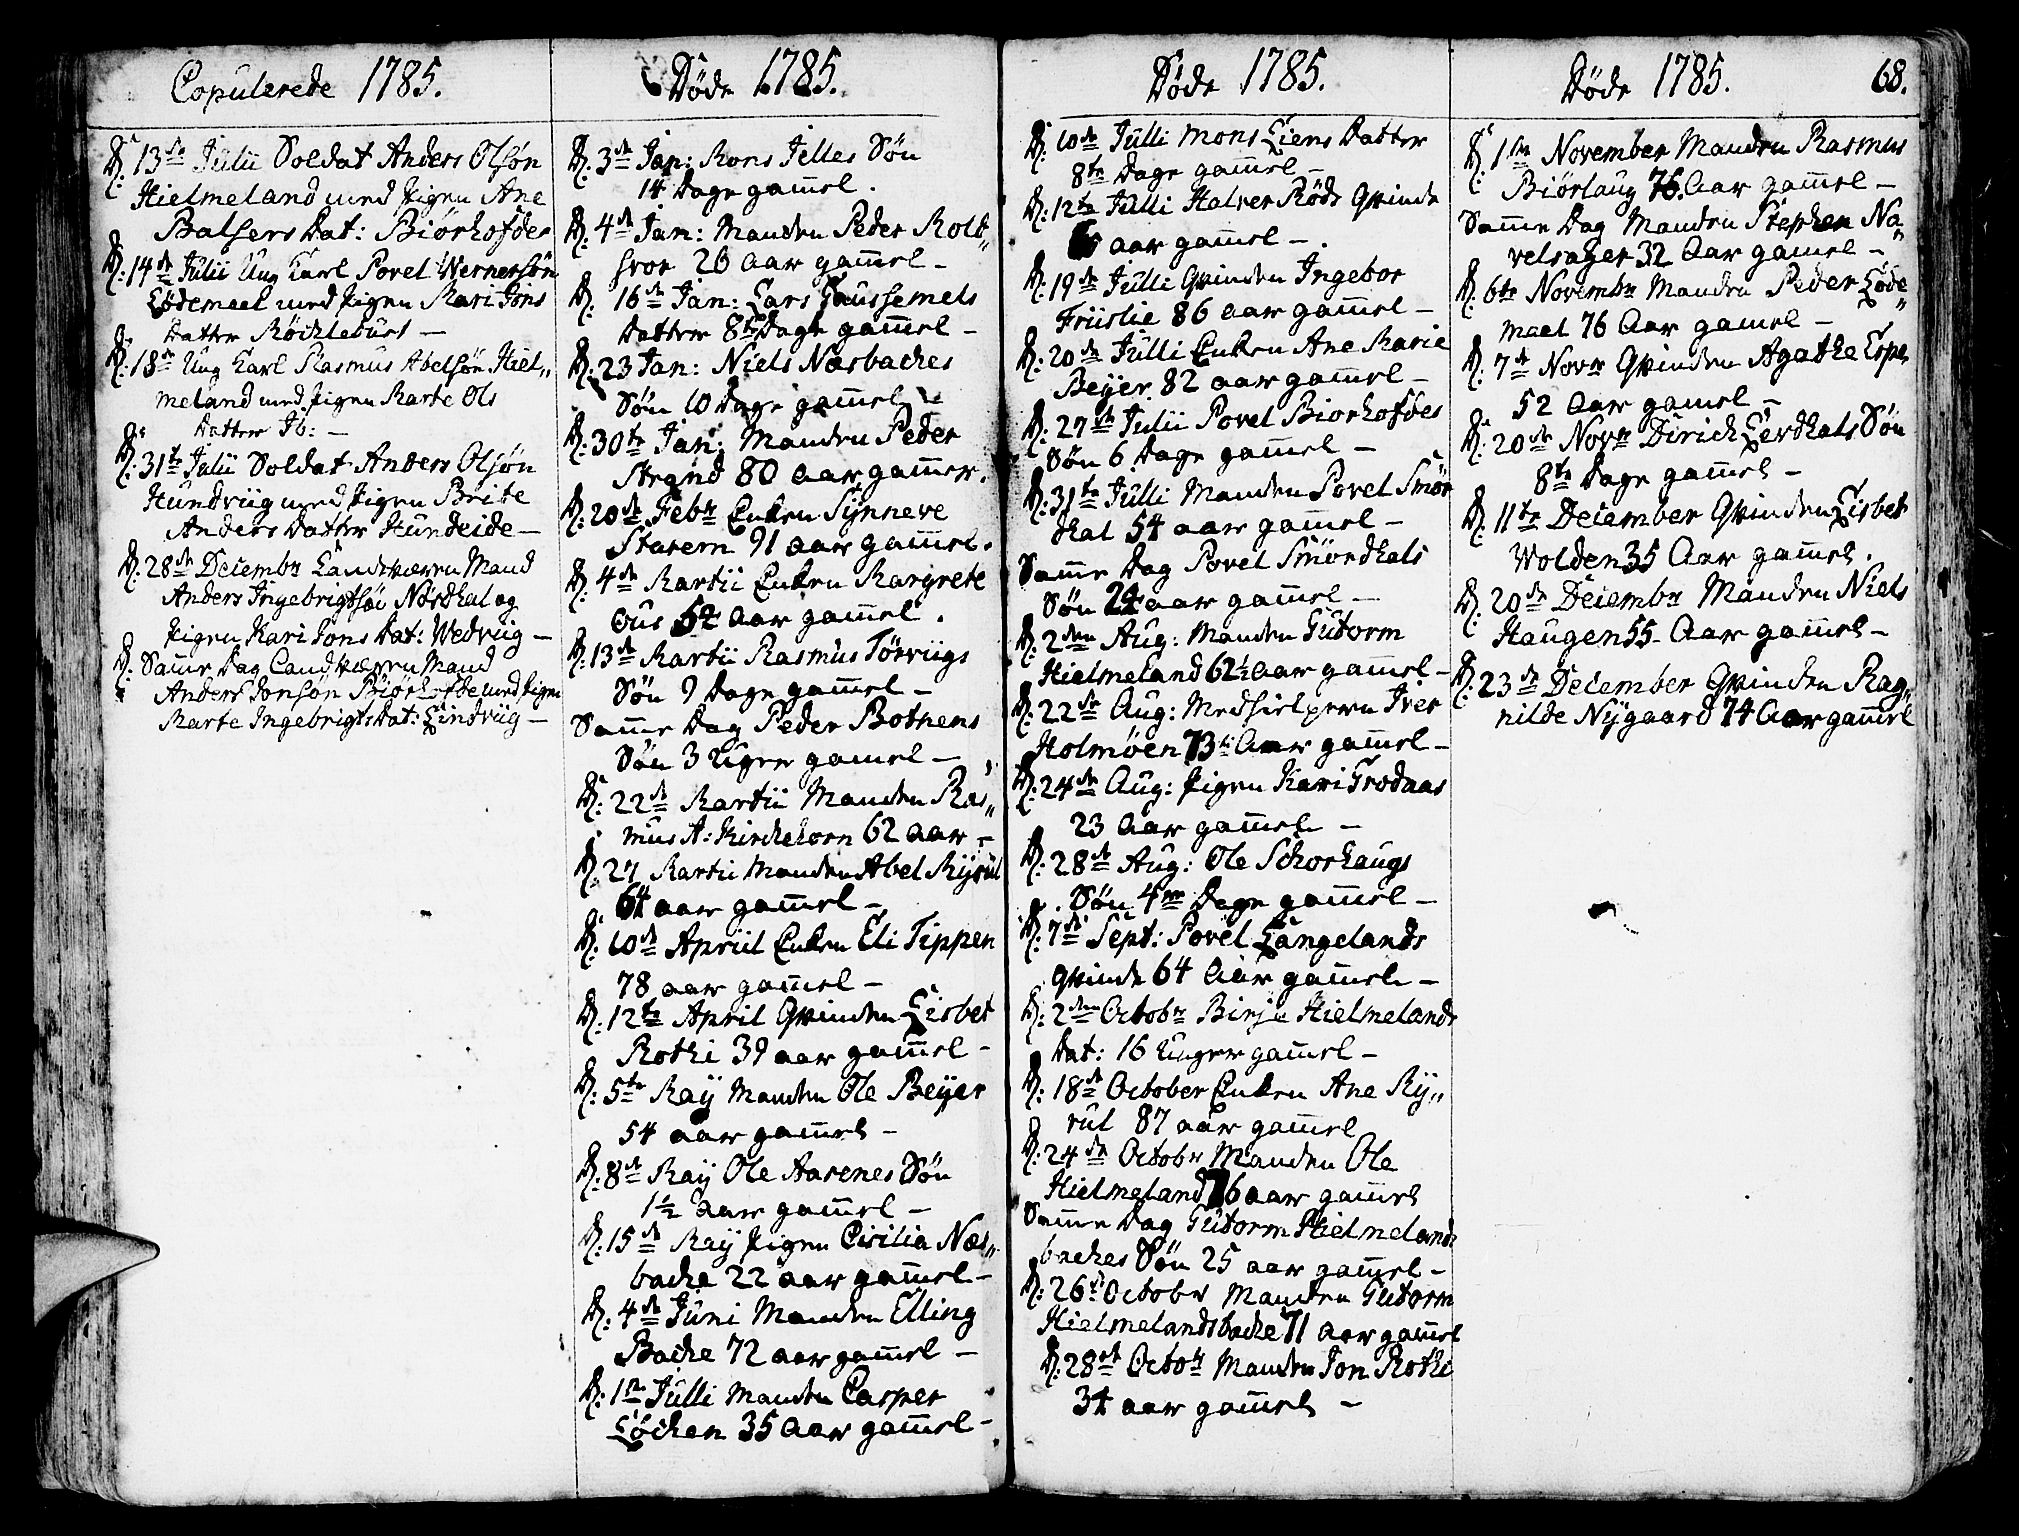 Copulerede 1785.
D: 13de Julii Soldat Anders Olsøn
Hielmeland med Pigen Ane
Balsers Dat: Biørhofdes
D: 14de Julii Ung Karl Povel Wernersøn
Lødemeel med Pigen Kari Jons
Datter
D: 18de Ung Karl Rasmus Abelsøn Hiel„
meland med Pigen Marte Ols
Datter Ib: —
D: 31te Julii Soldat Anders Olsøn
Hundviig med Pigen Brite
Anders Datter Hundeide —
D: 28de Decembr Landtværn Mand
Anders Ingebrigtsøn Nørdkal og
Pigen Kari Jons Dat: Wedviig —
D: Samme Dag Landtværn Mand
Anders Jonsøn Biørhofde med Pigen
Marte Ingebrigts Dat: Lindviig —
Døde 1785.
D: 3de Jan: Mons Jelles Søn
14 Dage gamel.
D: 4de Jan: Manden Peder Rolt„
gror 26 aar gamel —
D: 16de Jan: Lars Goussemels
Datter 8te Dage gamel —
D: 23 Jan: Niels Næsbackes
Søn 10 Dage gamel —
D: 30te Jan: Manden Peder
Strand 80 aar gammer.
D: 20de Febr Enken Synneve
Starem 91 aar gamel.
D: 4de Martii Enken Margrete
Ous 54 aar gamel.
D: 13de Martii Rasmus Tørviigs
Søn 9 Dage gamel —
Samme Dag Peder Bothens
Søn 3 Uger gamel —
D: 22de Martii Manden Ras„
mus A: Kirckehorn 62 aar —
D: 27 Martii Manden Abel Myrul
64 aar gamel —
D: 10de April Enken Eli Tippen
78 aar gamel —
D: 12te April Qvinden Lisbet
Rothi 39 aar gamel —
D: 5te May Manden Ole Beyer
54 aar gamel —
D: 8de May Ole Aarenes Søn
1½ aar gamel —
D: 15de May Pigen Cicilia Næs„
backe 22 aar gamel —
D: 4de Juni Manden Elling
Backe 72 aar gamel —
D: 1te Julli Manden Casper
Løcken 35 aar gamel —
Døde 1785.
D: 10de Julli Mons Liens Datter
8te Dage gamel —
D: 12te Julli Halver Røds Qvinde
aar gamel —.
D: 19de Julli Qvinden Ingebor
Friislie 86 aar gamel —
D: 20de Julli Enken Ane Marie
Beyer 82 aar gamel —
D: 27de Julii Povel Biorhofdes
Søn 6 Dage gamel —
D: 31te Julli Manden Povel Smør
dhal 54 aar gamel —
Samme Dag Povel Smørdhals
Søn 24 aar gamel —
D: 2den Aug: Manden Gutorm
Hielmeland 62½ aar gamel —
D: 22de Aug: Medhielperen Iver
Holmøen 73 Aar gamel —
D: 24de Aug: Pigen Kari Frodaas
23 Aar gamel —
D: 28de Aug: Ole Schorhaugs
Søn 4re Dage gamel —
D: 7de Sept: Povel Langelands
Qvinde 64 Aar gamel —
D: 2den Octobr Birje Hielmelands
Dat: 16 Uuger gamel —
D: 18de October Enken Ane My„
rul 87 aar gamel
D: 24de Octobr Manden Ole
Hielmeland 76 aar gamel
Samme Dag Gutorm Hielmelands
backes Søn 25 aar gamel —
D: 26de October Manden Gutorm
Hielmelandsbacke 71 aar gamel
D: 28de Octobr Manden Jon Rothi
34 aar gamel —
Døde 1785.
68.
D: 1ste November Manden Rasmus
Biørlaug 76. Aar gamel —
Samme Dag Manden Stephen Na„
velsager 32 Aar gamel —
D: 6te Novembr Manden Peder Løde„
meel 76 Aar gamel —
D: 7de Novr Qvinden Agathe Espe
52 aar gamel —
D: 20de Novr Dirich Lerdhals Søn
8te Dage gamel —
D: 11te December Qvinden Lisbet
Wolden 35 Aar gamel.
D: 20de Decembr Manden Niels
Haugen 55 Aar gamel —
D: 23de December Qvinden Rag„
nilde Nygaard 74 Aar gamel